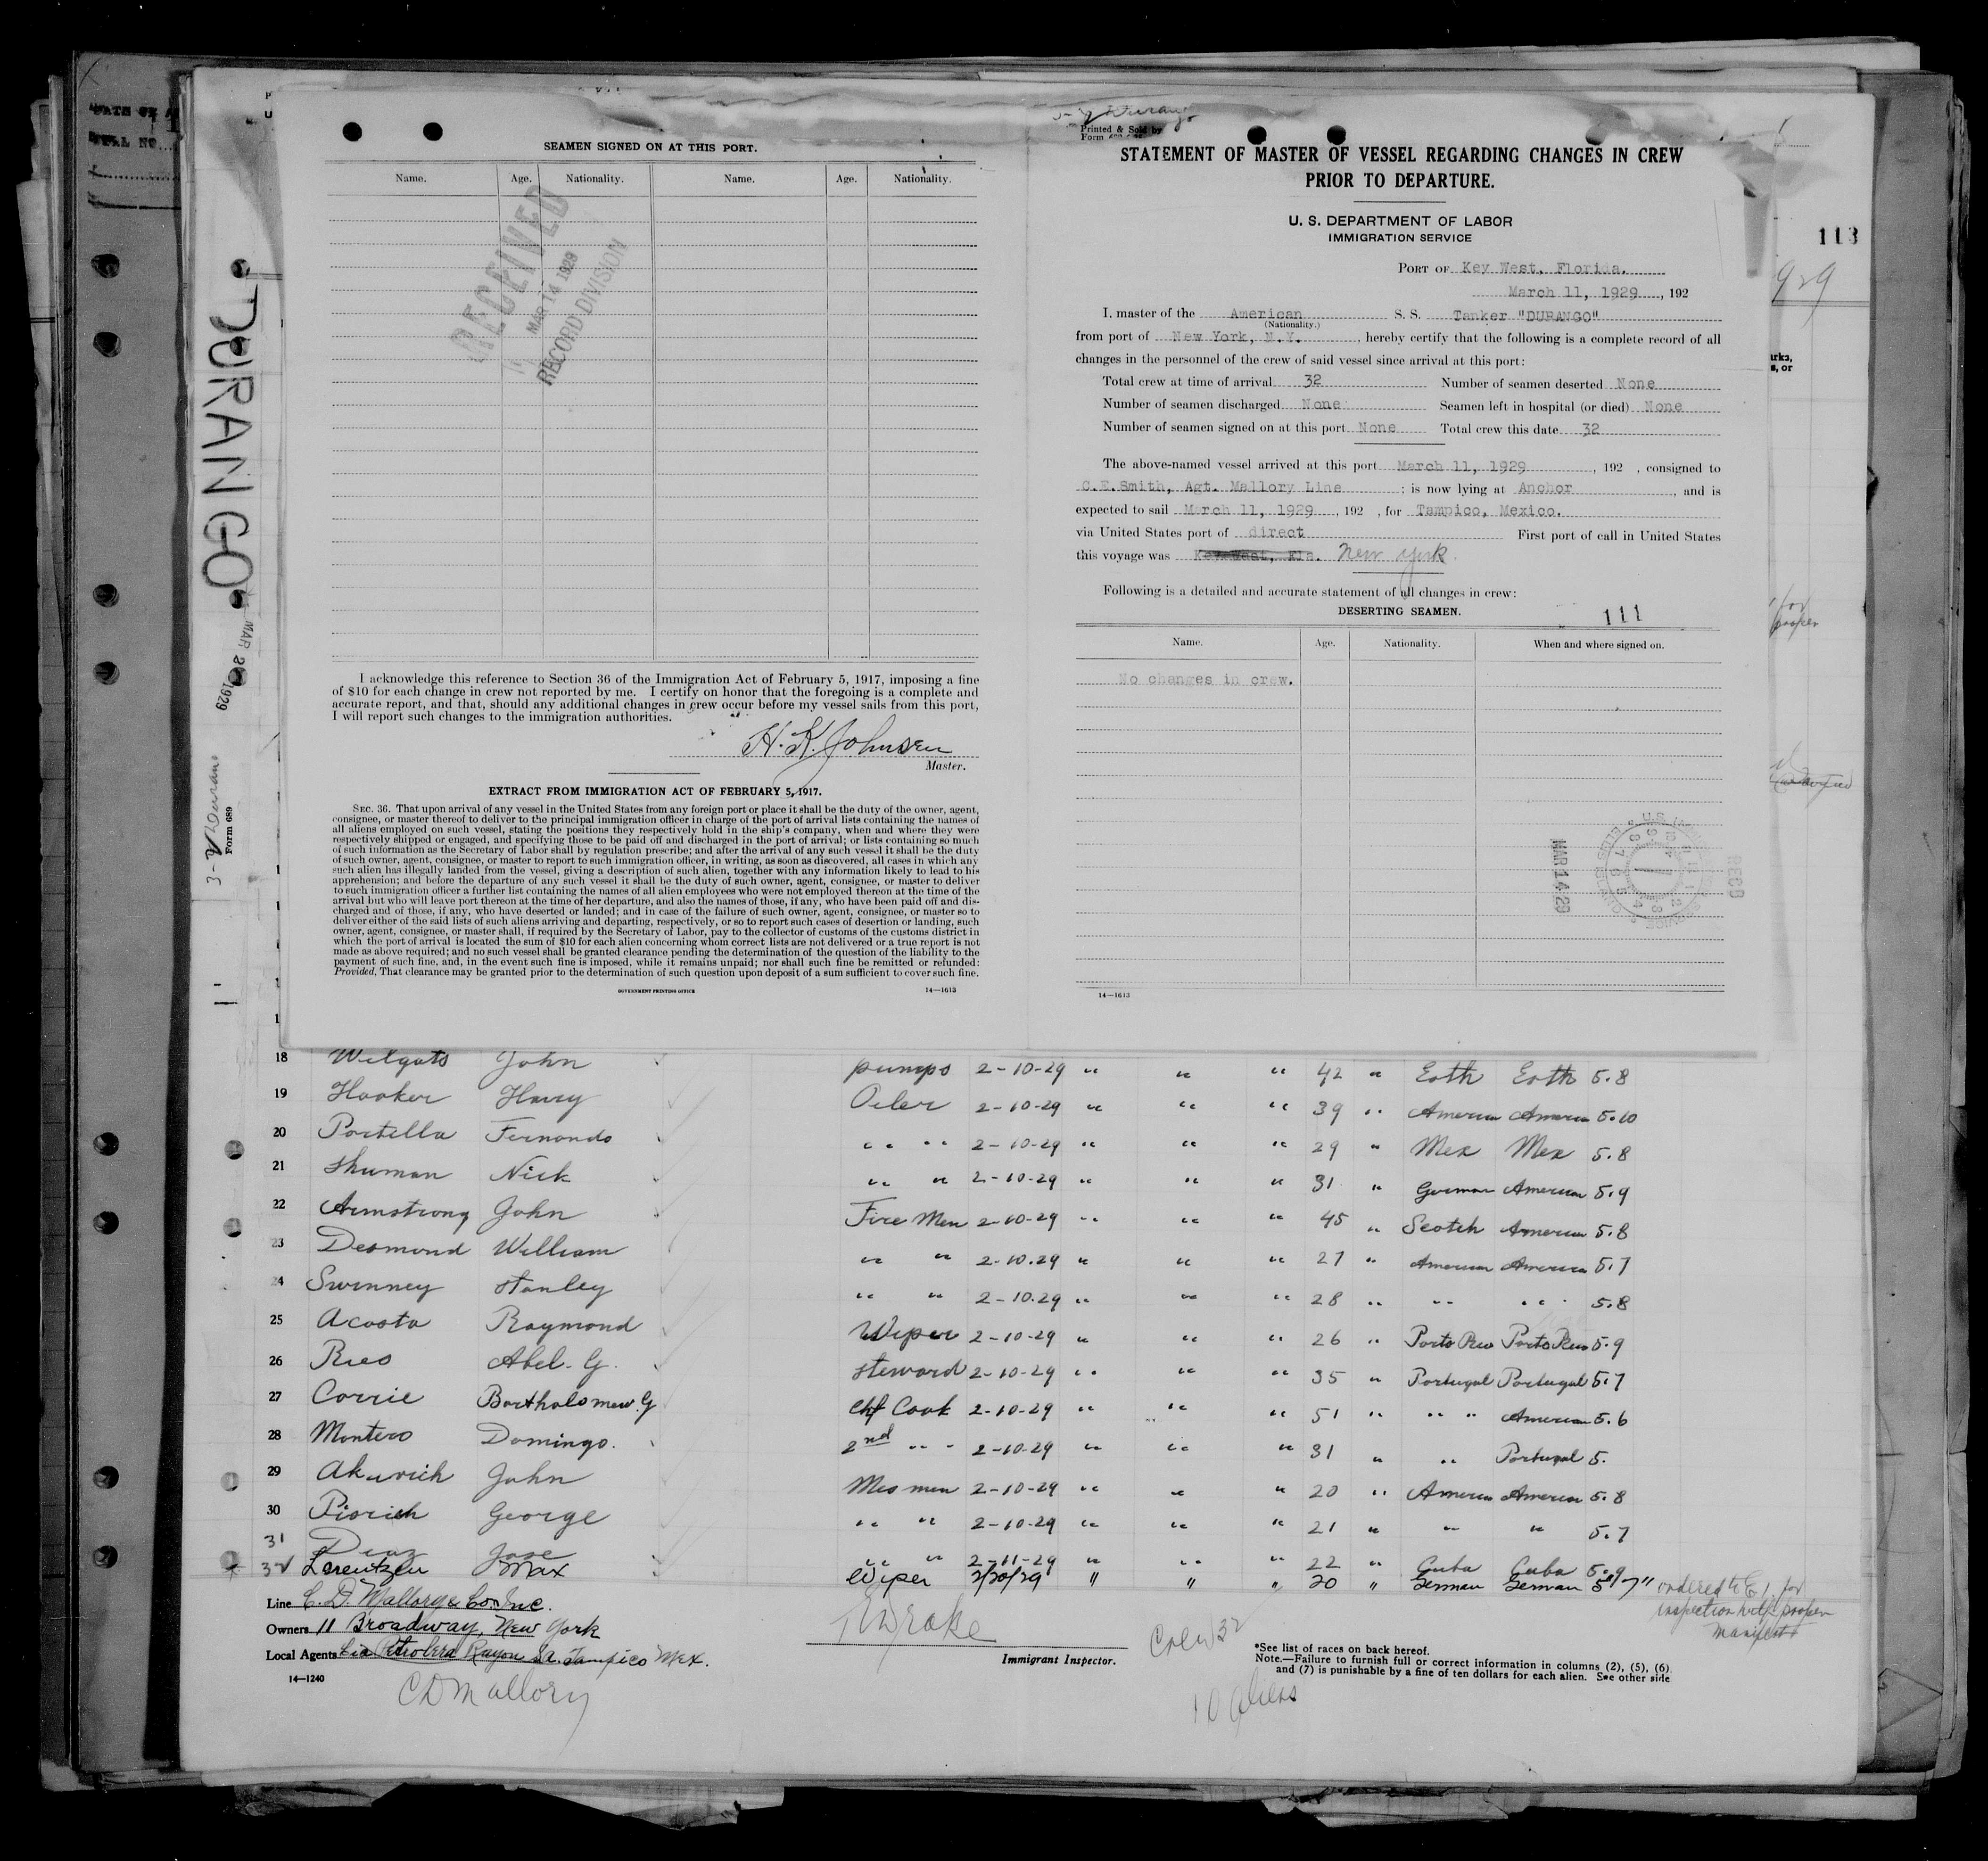 SEAMEN SIGNED ON AT THIS PORT.
Name. Age. Nationality. Name. Age. Nationality.
RECEIVED
MAR 14 1929
RECORD DIVISION
I acknowledge this reference to Section 36 of the Immigration Act of February 5, 1917, imposing a fine
of $10 for each change in crew not reported by me. I certify on honor that the foregoing is a complete and
accurate report, and that, should any additional changes in crew occur before my vessel sails from this port,
I will report such changes to the immigration authorities.
H. K. Johnsen
Master.
EXTRACT FROM IMMIGRATION ACT OF FEBRUARY 5, 1917.
SEC. 36. That upon arrival of any vessel in the United States from any foreign port or place it shall be the duty of the owner, agent,
consignee, or master thereof to deliver to the principal immigration officer in charge of the port of arrival lists containing the names of
all aliens employed on such vessel, stating the positions they respectively hold in the ship's company, when and where they were
respectively shipped or engaged, and specifying those to be paid off and discharged in the port of arrival; or lists containing so much
of such information as the Secretary of Labor shall by regulation prescribe; and after the arrival of any such vessel it shall be the duty
of such owner, agent, consignee, or master to report to such immigration officer, in writing, as soon as discovered, all cases in which any
such alien has illegally landed from the vessel, giving a description of such alien, together with any information likely to lead to his
apprehension; and before the departure of any such vessel it shall be the duty of such owner, agent, consignee, or master to deliver
to such immigration officer a further list containing the names of all alien employees who were not employed thereon at the time of the
arrival but who will leave port thereon at the time of her departure, and also the names of those, if any, who have been paid off and dis-
charged and of those, if any, who have deserted or landed; and in case of the failure of such owner, agent, consignee, or master so to
deliver either of the said lists of such aliens arriving and departing, respectively, or so to report such cases of desertion or landing, such
owner, agent, consignee, or master shall, if required by the Secretary of Labor, pay to the collector of customs of the customs district in
which the port of arrival is located the sum of $10 for each alien concerning whom correct lists are not delivered or a true report is not
made as above required; and no such vessel shall be granted clearance pending the determination of the question of the liability to the
payment of such fine, and, in the event such fine is imposed, while it remains unpaid; nor shall such fine be remitted or refunded:
Provided, That clearance may be granted prior to the determination of such question upon deposit of a sum sufficient to cover such fine.
GOVERNMENT PRINTING OFFICE 14—1613
Durango
Printed & Sold by
Form
STATEMENT OF MASTER OF VESSEL REGARDING CHANGES IN CREW
PRIOR TO DEPARTURE.
U. S. DEPARTMENT OF LABOR
IMMIGRATION SERVICE
PORT OF Key West, Florida.
March 11, 1929, 192
I, master of the American S. S. Tanker "DURANGO"
(Nationality.)
from port of New York, N.Y., hereby certify that the following is a complete record of all
changes in the personnel of the crew of said vessel since arrival at this port:
Total crew at time of arrival 32 Number of seamen deserted None
Number of seamen discharged None Seamen left in hospital (or died) None
Number of seamen signed on at this port None Total crew this date 32
The above-named vessel arrived at this port March 11, 1929, 192 , consigned to
C.E.Smith, Agt. Mallory Line ; is now lying at Anchor, and is
expected to sail March 11, 1929, 192 , for Tampico, Mexico.
via United States port of direct First port of call in United States
this voyage was Key West, Fla. New York
Following is a detailed and accurate statement of all changes in crew:
DESERTING SEAMEN. 111
Name. Age. Nationality. When and where signed on.
No changes in crew.
MAR 14 29
RECD
14—1613
113
DURANGO
MAR 1929
3- Durango
Form 689
18 Welgats John pumps 2-10-29 " " " 42 " Esth Esth 5.8
19 Hooker Harry Oiler 2-10-29 " " " 39 " American American 5.10
20 Portilla Fernando " " 2-10-29 " " " 29 " Mex Mex 5.8
21 Shuman Nick " " 2-10-29 " " " 31 " German American 5.9
22 Armstrong John Fire Men 2-10-29 " " " 45 " Scotch American 5.8
23 Desmond William " " 2-10.29 " " " 27 " American American 5.7
24 Swinney Stanley " " 2-10.29 " " " 28 " " " 5.8
25 Acosta Raymond Wiper 2-10-29 " " " 26 " Porto Rico Porto Rico 5.9
26 Rios Abel. G. Steward 2-10-29 " " " 35 " Portugal Portugal 5.7
27 Corrie Bartholomew. G Chf Cook 2-10-29 " " " 51 " " " American 5.6
28 Montero Domingo. 2nd " " 2-10-29 " " " 31 " " Portugal 5.
29 Akurich John Mes men 2-10-29 " " " 20 " American American 5.8
30 Piorich George " " 2-10-29 " " " 21 " " " 5.7
31 Diaz Jose " " 2-11-29 " " " 22 " Cuba Cuba 5.9
32 Lorentzen Max Wiper 2/20/29 " " " 20 " German German 5 7"
ordered to E.I. for
inspection with proper
manifest
Line C. D. Mallory & Co. Inc.
Owners 11 Broadway, New York
Local Agents Cia Petrolera Rayon Sa. Tampico Mex.
14—1240
C D Mallory
Drake
Immigrant Inspector.
Crew 32
10 aliens
*See list of races on back hereof.
Note.—Failure to furnish full or correct information in columns (2), (5), (6)
and (7) is punishable by a fine of ten dollars for each alien. See other side